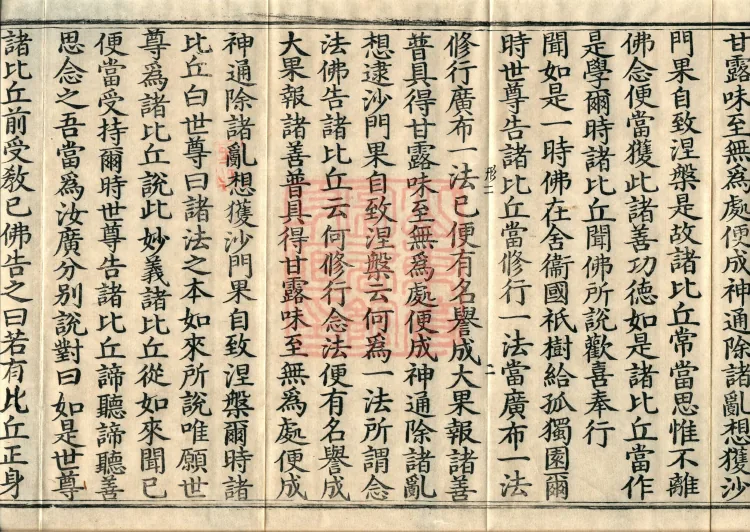 甘露味至無為處便成神通除諸亂想獲沙
門果自致涅槃是故諸比丘常當思惟不離
佛念便當獲此諸善功德如是諸比丘當作
是學爾時諸比丘聞佛所說歡喜奉行
聞如是一時佛在舍衛國祇樹給孤獨園爾
時世尊告諸比丘當修行一法當廣布一法
形二
二
修行廣布一法已便有名譽成大果報諸善
普具得甘露味至無為處便成神通除諸亂
想逮沙門果自致涅槃云何為一法所謂念
法佛告諸比丘云何修行念法便有名譽成
大果報諸善普具得甘露味至無為處便成
神通除諸亂想獲沙門果自致涅槃爾時諸
比丘白世尊曰諸法之本如來所說唯願世
尊為諸比丘說此妙義諸比丘從如來聞已
便當受持爾時世尊告諸比丘諦聽諦聽善
思念之吾當為汝廣分別說對曰如是世尊
諸比丘前受教已佛告之曰若有比丘正身